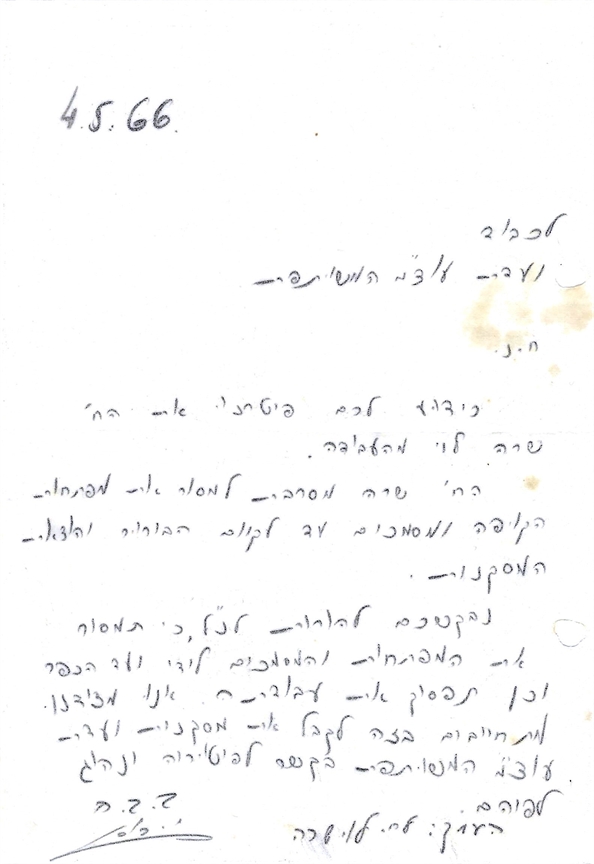 4.5.66.
לכבוד
ועדת עוצ"מ המשותפת
ח.נ.
כידוע לכם פיטרנו את הח'
שרה לוי מהעבודה.
הח' שרה מסרבת למסור את מפתחות
הקופה ומסמכים עד לקיום הבורות והוצאת
המסקנות.
נבקשכם להורות לנ"ל, כי תמסור
את המפתחות והמסמכים לידי ועד הכפר
וכן תפסיק את עבודתה. אנו מצידנו
מתחייבים בזה לקבל את מסקנות ועדת
עוצ"מ המשותפת בקשר לפיטוריה ונהיג
לפיהם.
ב.ב.ח
העתק: לח' לוי שרה